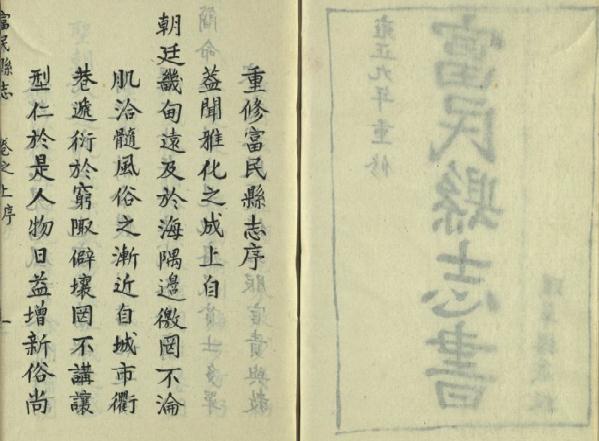 雍正九年重修
富民縣志書
重修富民縣志序
葢聞雅化之成上自
朝廷畿甸遠及於海隅邊徼罔不淪
肌洽髓風俗之漸近自城市衢
巷遞衍於窮陬僻壤罔不講讓
型仁於是人物日益增新俗尚
富民縣志 卷之上序 一